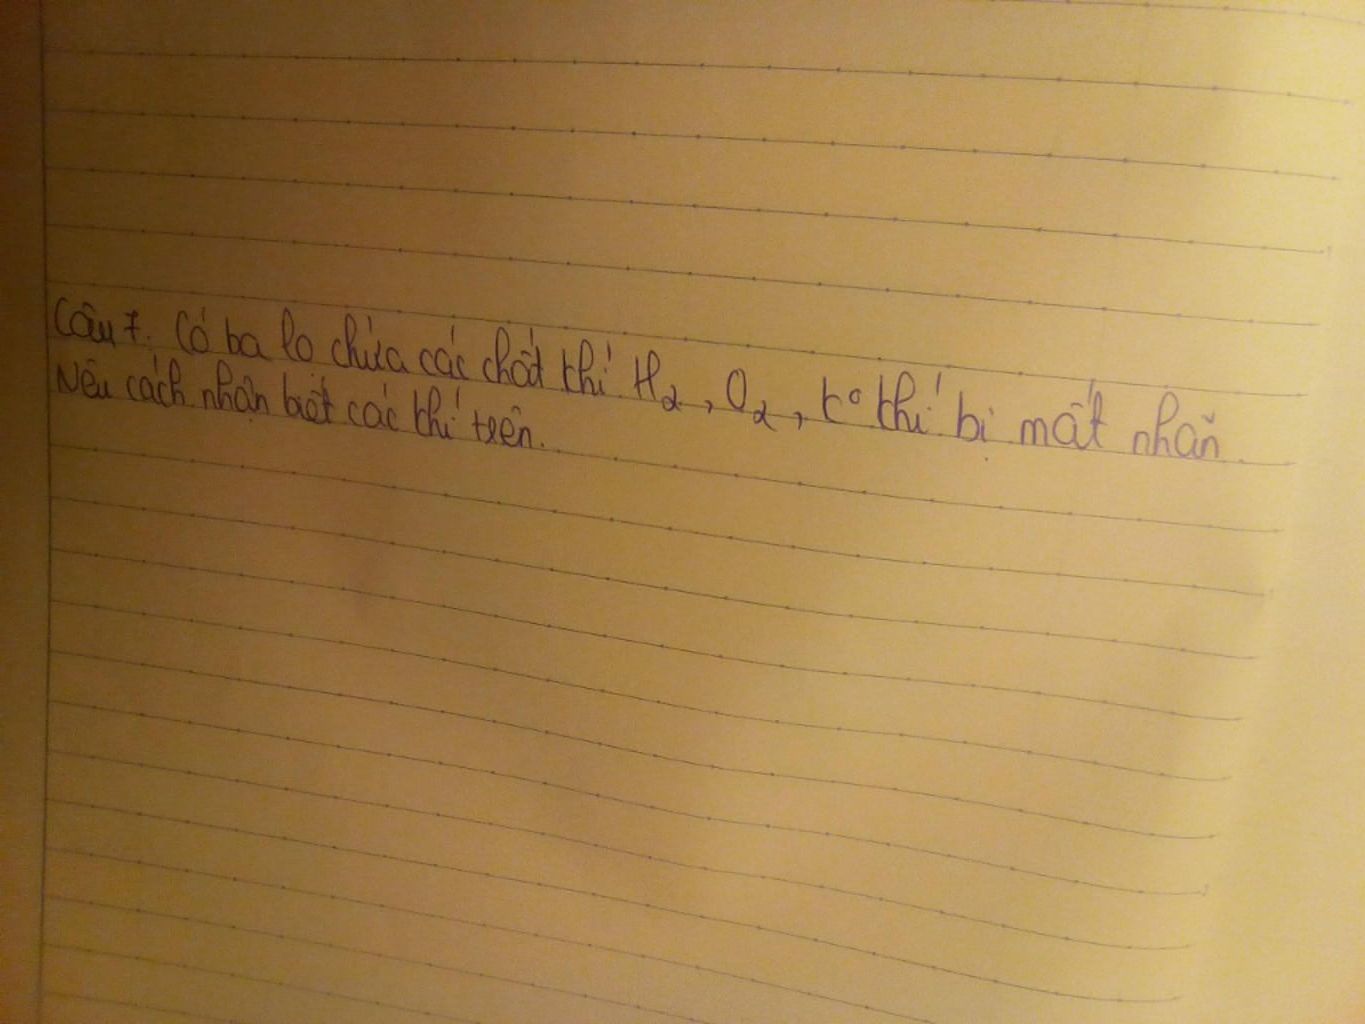 Câu 7. Có ba lọ chứa các chất khí H₂, O₂, k° khí bị mất nhãn.
Nêu cách nhận biết các khí trên.